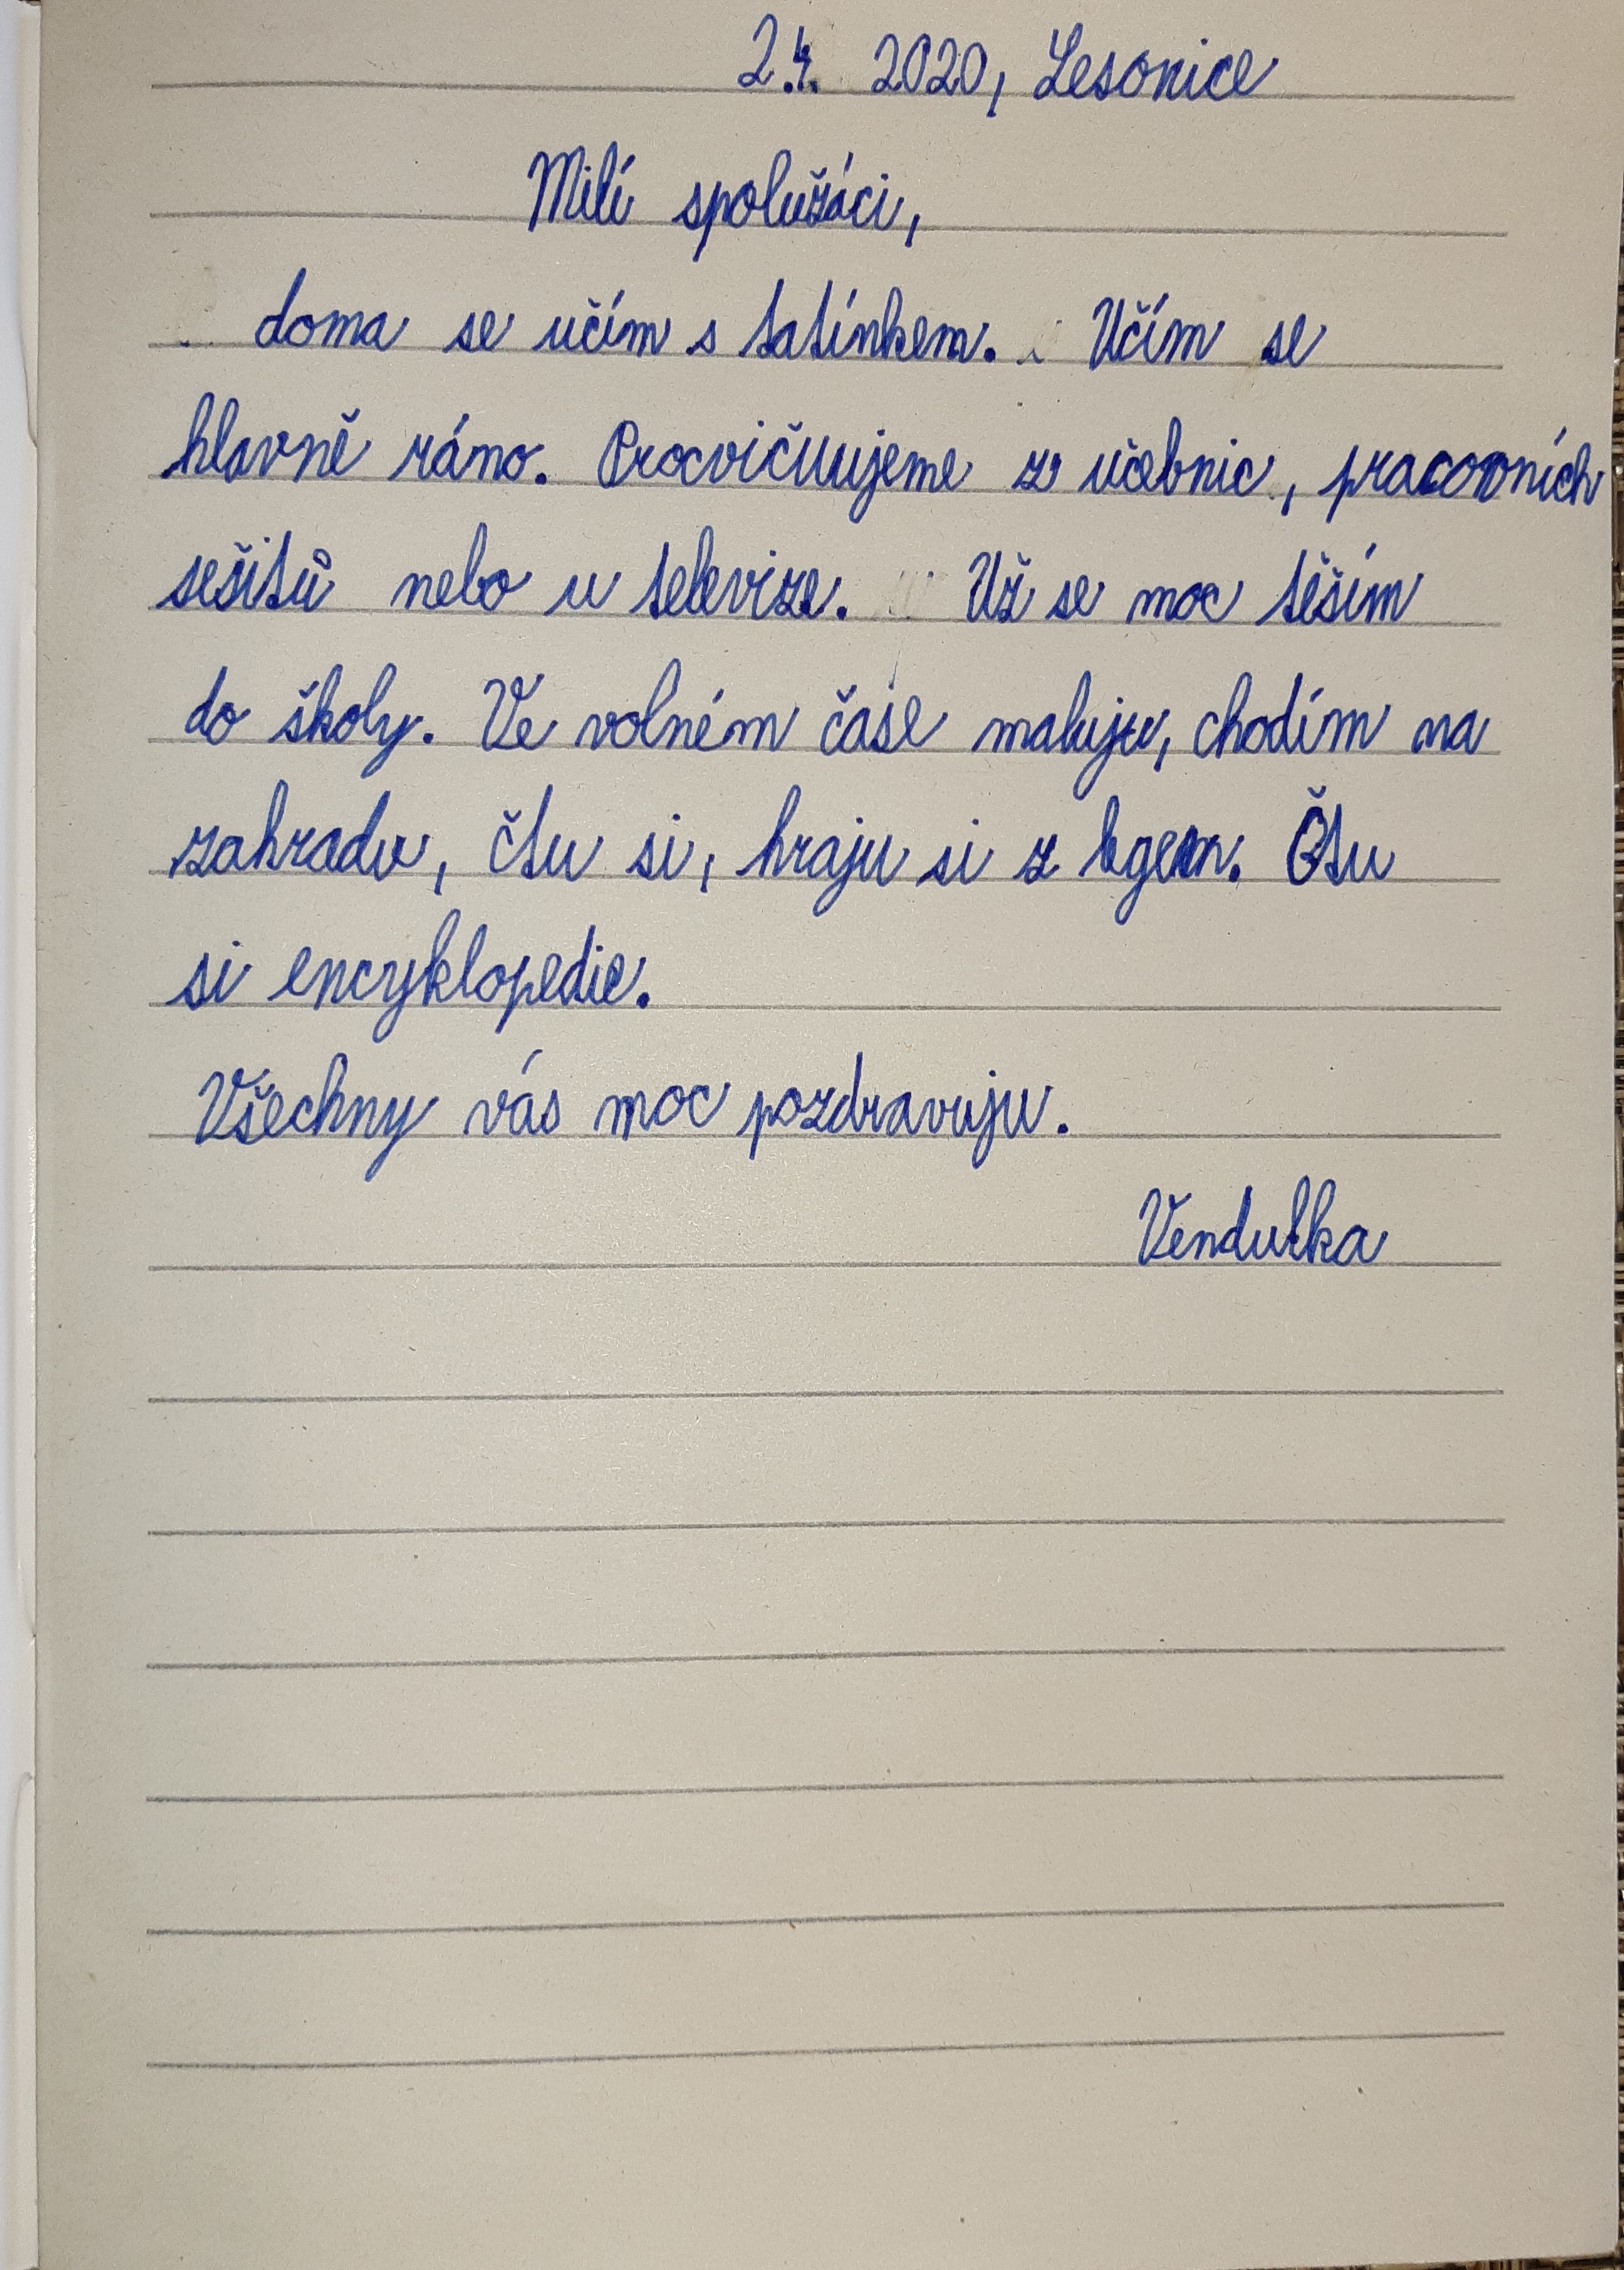 2.4. 2020, Lesonice
Milí spolužáci,
doma se učím s tatínkem. Učím se
hlavně ráno. Procvičuujeme z učebnic, pracovních
sešitů nebo u televize. Už se moc těším
do školy. Ve volném čase maluju, chodím na
zahradu, čtu si, hraju si z legem. Čtu
si encyklopedie.
Všechny vás moc pozdravuju.
Vendulka